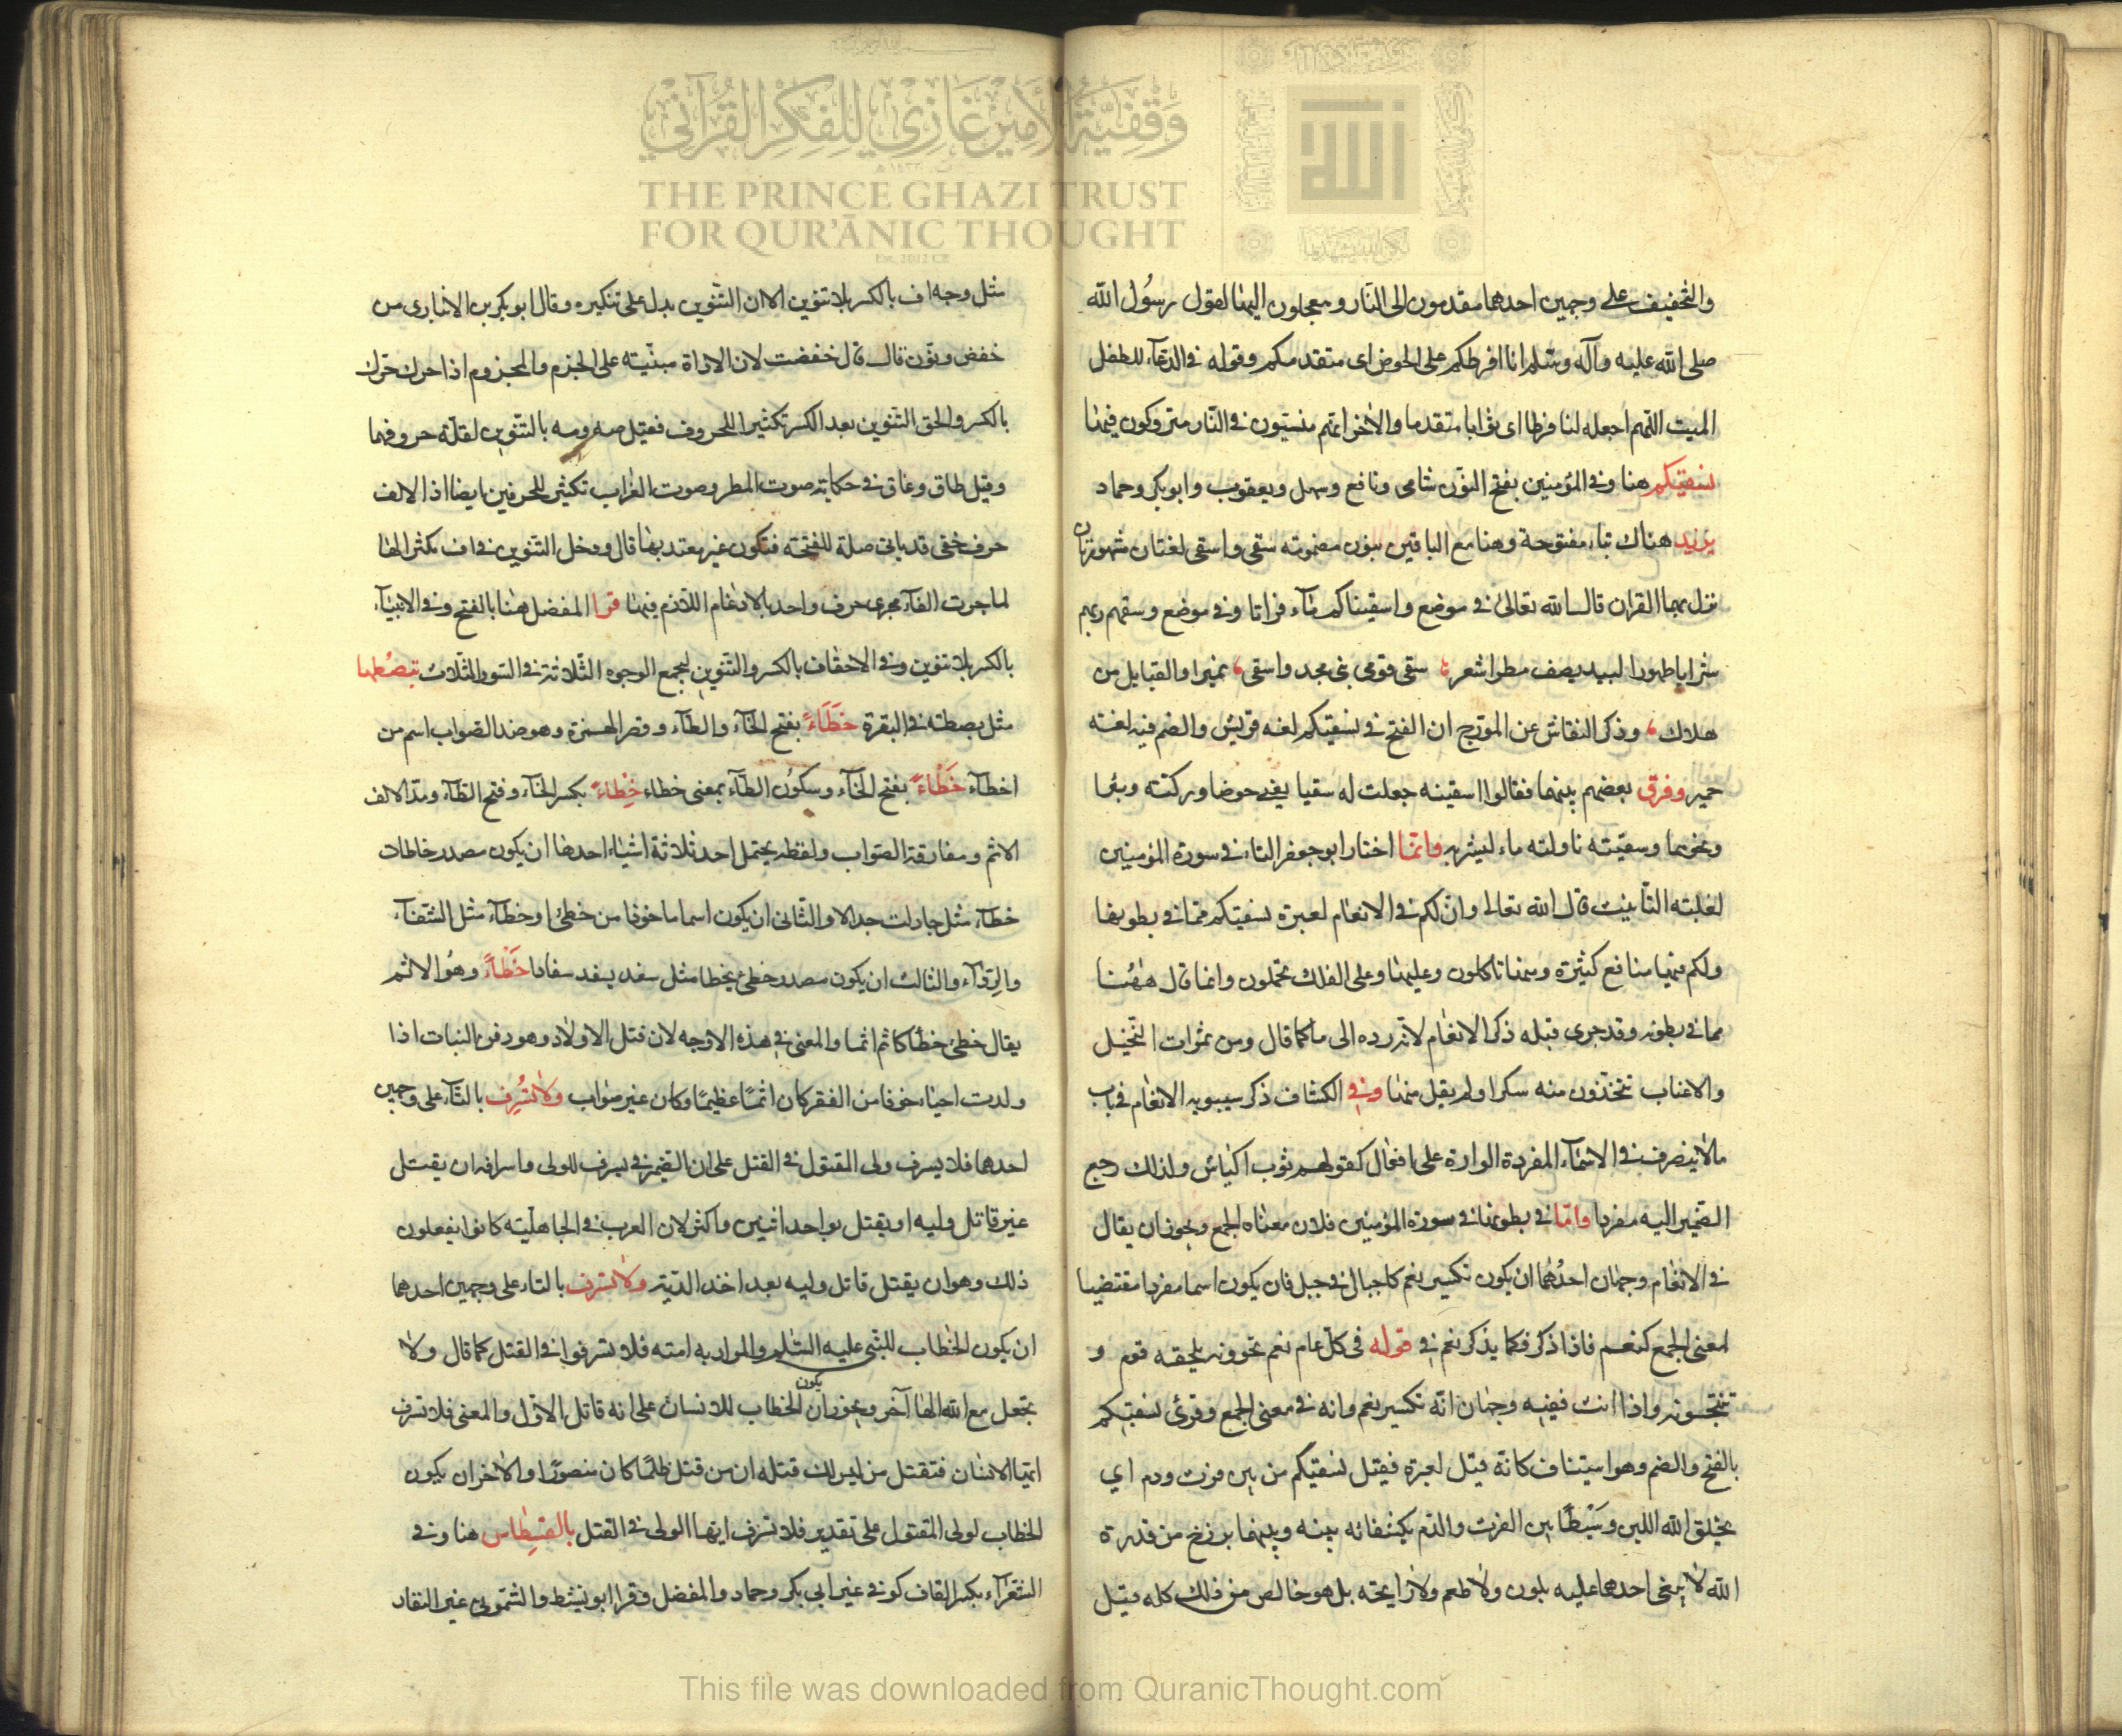 وقفية الأمير غازي للفكر القرآني
THE PRINCE GHAZI TRUST
FOR QUR'ĀNIC THOUGHT
Est. 2012 CE
والتخفيف على وجهين احدهما مقدمون الى النار ومعجلون اليها لقول رسول الله
صلى الله عليه وآله وسلم انا افرطكم على الحوض اى متقدمكم وقوله فى الدعاء للطفل
الميت اللهم اجعله لنا فرطا اى ثوابا متقدما والاخر انهم منسيون فى النار متروكون فيها
نسقيكم هنا وفى المؤمنين بفتح النون شامى ونافع وسهل ويعقوب وابو بكر وحماد
يزيد هناك بتاء مفتوحة وهنا مع الباقين بنون مضمومة سقى واسقى لغتان مشهورتان
نزل بهما القران قال الله تعالى فى موضع واسقيناكم ماء فراتا وفى موضع وسقهم ربهم
شرابا طهورا لبيد يصف مطرا شعر سقى قومى بنى مجد واسقى نميرا والقبايل من
هلال وذكر النقاش عن المورج ان الفتح فى نسقيكم لغة قريش والضم فيه لغة
حمير وفرق بعضهم بينهما فقالوا اسقيته جعلت له سقيا يعنى حوضا وركية وبئرا
ونحوها وسقيته ناولته ماء ليشربه وانما اختار ابو جعفر التاء فى سورة المؤمنين
لغلبته التأنيث قال الله تعالى وان لكم فى الانعام لعبرة نسقيكم مما فى بطونها
ولكم فيها منافع كثيرة ومنها تاكلون وعليها وعلى الفلك تحملون وانما قال ههنا
مما فى بطونه وقد جرى قبله ذكر الانعام لانه رده الى ما كما قال ومن ثمرات النخيل
والاعناب تتخذون منه سكرا ولم يقل منها وفى الكشاف ذكر سيبويه الانعام فى باب
ما لا ينصرف فى الاسماء المفردة الواردة على افعال كقولهم ثوب اكياش ولذلك رجع
الضمير اليه مفردا واما فى بطونها فى سورة المؤمنين فلان معناه الجمع ويجوز ان يقال
فى الانعام وجهان احدهما ان يكون تكسير نعم كاجبال فى جبل فان يكون اسما مفردا مقتضيا
لمعنى الجمع كنعم فاذا ذكر فكما يذكر نعم فى قوله فى كل عام نعم تحوونه يلحقه قوم و
تنتجونه واذا انث ففيه وجهان انه تكسير نعم وانه فى معنى الجمع وقرئ نسقيكم
بالفتح والضم وهو استيناف كانه قيل لعبرة فقيل نسقيكم من بين فرث ودم اي
يخلق الله اللبن وسيطا بين الفرث والدم يكتنفانه بينه وبينهما برزخ من قدرة
الله لا يبغى احدهما عليه بلون ولا طعم ولا رايحة بل هو خالص من ذلك كله قيل
مثل وجه اف بالكسر بلا تنوين الا ان التنوين يدل على تنكيره وقال ابو بكر بن الانبارى من
خفض ونون قال قال خفضت لان الاداة مبنية على الجزم والمجزوم اذا حرك حرك
بالكسر والحق التنوين بعد الكسر تكثيرا للحروف فقيل صه ومه بالتنوين لقلة حروفها
وقيل طاق وغاق فى حكاية صوت المطر وصوت الغراب تكثير للحرفين ايضا اذ الالف
حرف خفى قد ياتى صلة للفتحة فتكون غير معتد بها قال ودخل التنوين فى اف تكثرا لها
لما جرت الفاء مجرى حرف واحد بالادغام اللازم فيها قرا المفضل هنا بالفتح وفى الانبياء
بالكسر بلا تنوين وفى الاحقاف بالكسر والتنوين ليجمع الوجوه الثلاثة فى السور الثلاث تبصطها
مثل بصطة فى البقرة خطاء بفتح الخاء والطاء وقصر الهمزة وهو ضد الصواب اسم من
اخطاء خطاء بفتح الخاء وسكون الطاء بمعنى خطاء خطاء بكسر الخاء وفتح الطاء ومد الالف
الاثم ومفارقة الصواب ولفظه يحتمل احد ثلاثة اشياء احدها ان يكون مصدر خاطات
خطاء مثل جادلت جدالا والثانى ان يكون اسما ماخوذا من خطئ او خطاء مثل الشفاء
والرواء والثالث ان يكون مصدر خطئ يخطا مثل سفد يسفد سفادا خطاء وهو الاثم
يقال خطئ خطأ كاثم اثما والمعنى فى هذه الاوجه لان قتل الاولاد وهو دفن البنات اذا
ولدت احياء خوفا من الفقر كان اثما عظيما وكان غير صواب ولا تسرف بالتاء على وجهين
احدهما فلا يسرف ولى المقتول فى القتل على ان الضمير فى يسرف للولى واسرافه ان يقتل
غير قاتل وليه او يقتل بواحد اثنين واكثر لان العرب فى الجاهلية كانوا يفعلون
ذلك وهو ان يقتل قاتل وليه بعد اخذ الدية ولا تسرف بالتاء على وجهين احدهما
ان يكون الخطاب للنبى عليه السلم والمراد به امته فلا تسرفوا فى القتل كما قال ولا
تجعل مع الله الها آخر ويجوز ان يكون الخطاب للانسان على انه قاتل الاول والمعنى فلا تسرف
ايها الانسان فتقتل من ليس لك قتله ان من قتل ظلما كان منصورا والاخر ان يكون
الخطاب لولى المقتول على تقدير فلا تسرف ايها الولى فى القتل بالقسطاس هنا وفى
الشعراء بكسر القاف كوفى غير ابى بكر وحماد والمفضل وقرا ابو نشيط والشمونى غير النقاد
This file was downloaded from QuranicThought.com